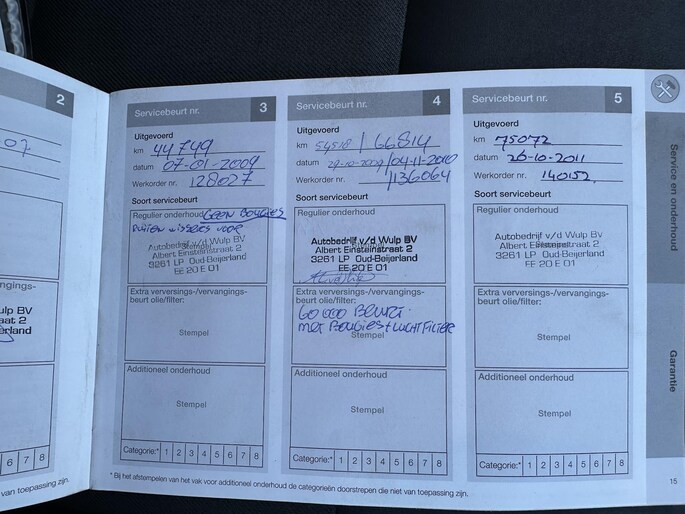 2
07
ulp BV
aat 2
erland
6 7 8
van toepassing zijn.
Servicebeurt nr. 3
Uitgevoerd
km 44749
datum 07-01-2009
Werkorder nr. 128027
Soort servicebeurt
Regulier onderhoud GEEN BOUGIES
RUITEN WISSERS VOOR
Autobedrijf v/d Wulp BV
Albert Einsteinstraat 2
Stempel
3261 LP Oud-Beijerland
EE 20 E 01
Extra verversings-/vervangings-
beurt olie/filter:
Stempel
Additioneel onderhoud
Stempel
Categorie:* 1 2 3 4 5 6 7 8
Servicebeurt nr. 4
Uitgevoerd
km 54518 / 66814
datum 29-10-2009 / 04-11-2010
Werkorder nr. 136064
Soort servicebeurt
Regulier onderhoud
Autobedrijf v/d Wulp BV
Albert Einsteinstraat 2
3261 LP Oud-Beijerland
EE 20 E 01
Extra verversings-/vervangings-
beurt olie/filter:
60 000 BEURT.
MET BOUGIES + LUCHTFILTER
Stempel
Additioneel onderhoud
Stempel
Categorie:* 1 2 3 4 5 6 7 8
Servicebeurt nr. 5
Uitgevoerd
km 75072
datum 26-10-2011
Werkorder nr. 140152
Soort servicebeurt
Regulier onderhoud
Autobedrijf v/d Wulp BV
Albert Einsteinstraat 2
Stempel
3261 LP Oud-Beijerland
EE 20 E 01
Extra verversings-/vervangings-
beurt olie/filter:
Stempel
Additioneel onderhoud
Stempel
Categorie:* 1 2 3 4 5 6 7 8
* Bij het afstempelen van het vak voor additioneel onderhoud de categorieën doorstrepen die niet van toepassing zijn.
Service en onderhoud
Garantie
15